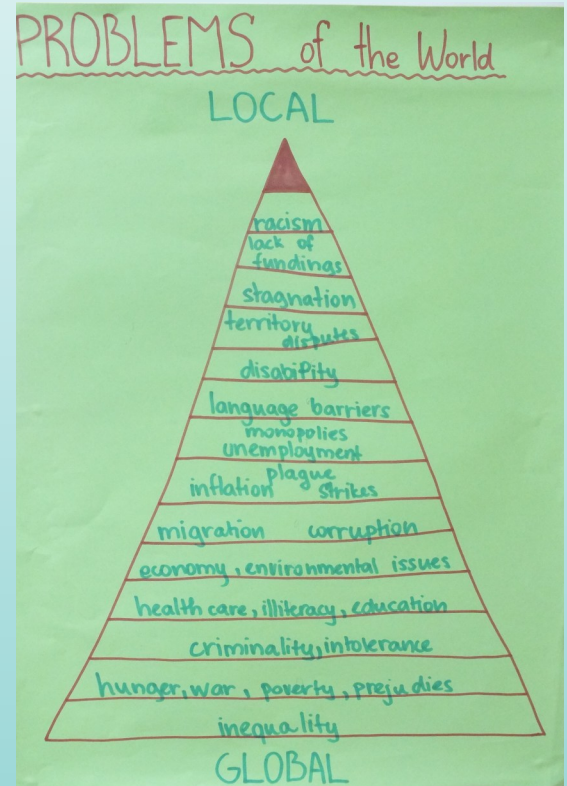 PROBLEMS of the World
LOCAL
racism
lack of
fundings
stagnation
territory
disputes
disability
language barriers
monopolies
unemployment
plague
inflation strikes
migration corruption
economy, environmental issues
health care, illiteracy, education
criminality, intolerance
hunger, war, poverty, prejudies
inequality
GLOBAL